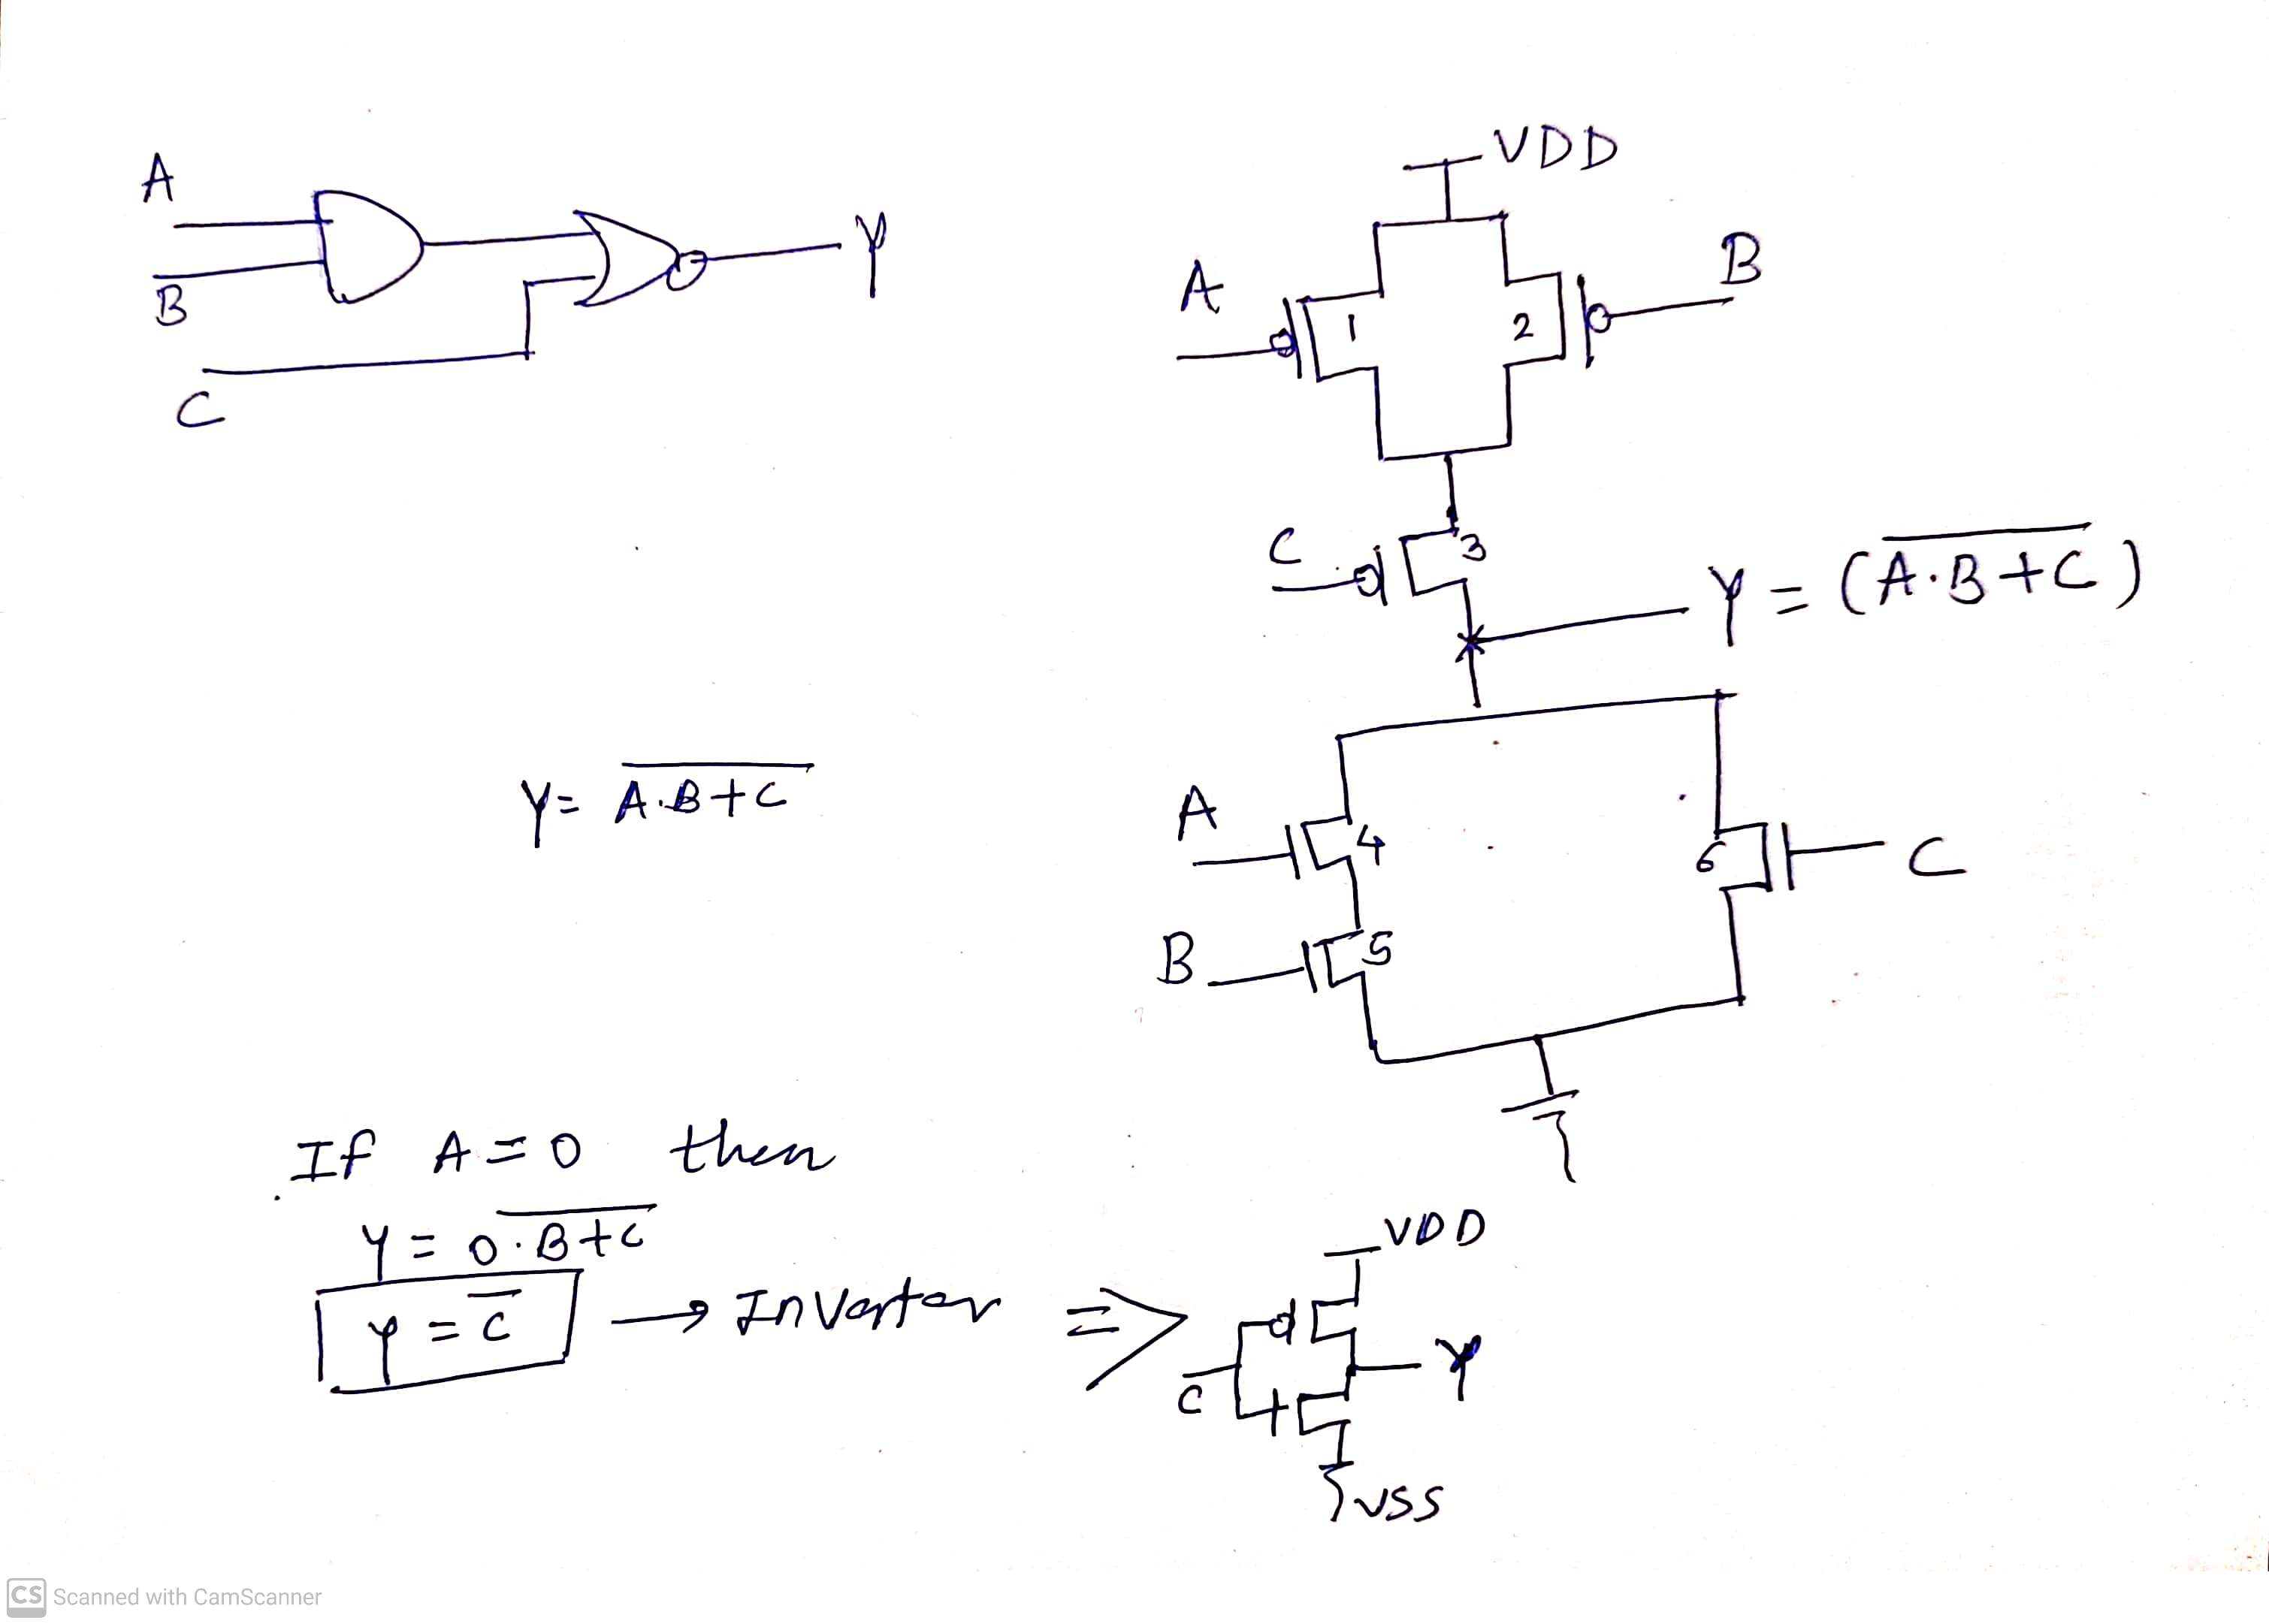 A
B
C
Y
VDD
A
1
2
B
C
3
Y = (A̅·̅B̅ ̅+̅ ̅C̅)
Y = A̅.̅B̅ ̅+̅ ̅C̅
A
4
B
5
6
C
If A = 0 then
Y = 0̅·̅B̅ ̅+̅ ̅C̅
Y = C̅ → Invertor ⇒
VDD
C
Y
VSS
CS Scanned with CamScanner